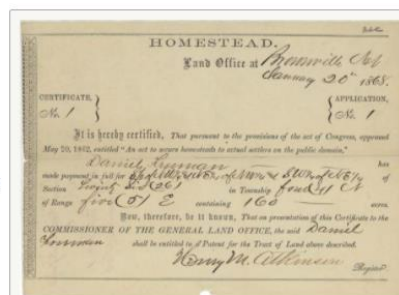 HOMESTEAD.
Land Office at Brownville Neb
January 20th 1868.
CERTIFICATE, No. 1 } { APPLICATION, No. 1
It is hereby certified, That pursuant to the provisions of the act of Congress, approved
May 20, 1862, entitled "An act to secure homesteads to actual settlers on the public domain,"
Daniel Freeman has
made payment in full for of NE¼ of
Section Twenty Six (26) in Township four (4) N
of Range five (5) E containing 160 acres.
Now, therefore, be it known, That on presentation of this Certificate to the
COMMISSIONER OF THE GENERAL LAND OFFICE, the said Daniel
Freeman shall be entitled to a Patent for the Tract of Land above described.
Henry M. Atkinson
Register